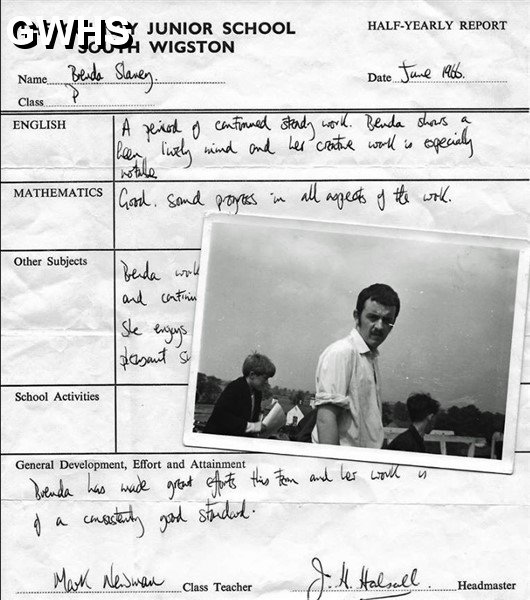 GWHS.
Y JUNIOR SCHOOL
SOUTH WIGSTON
HALF-YEARLY REPORT
Name Brenda Slaney.
Date June 1966.
Class P
ENGLISH
A period of continued steady work. Brenda shows a
keen lively mind and her creative work is especially
notable.
MATHEMATICS
Good. Sound progress in all aspects of the work.
Other Subjects
Brenda work
and continu
She enjoys
pleasant
School Activities
General Development, Effort and Attainment
Brenda has made great efforts this term and her work is
of a consistently good standard.
Mark Newman Class Teacher
J. H. Halsall. Headmaster